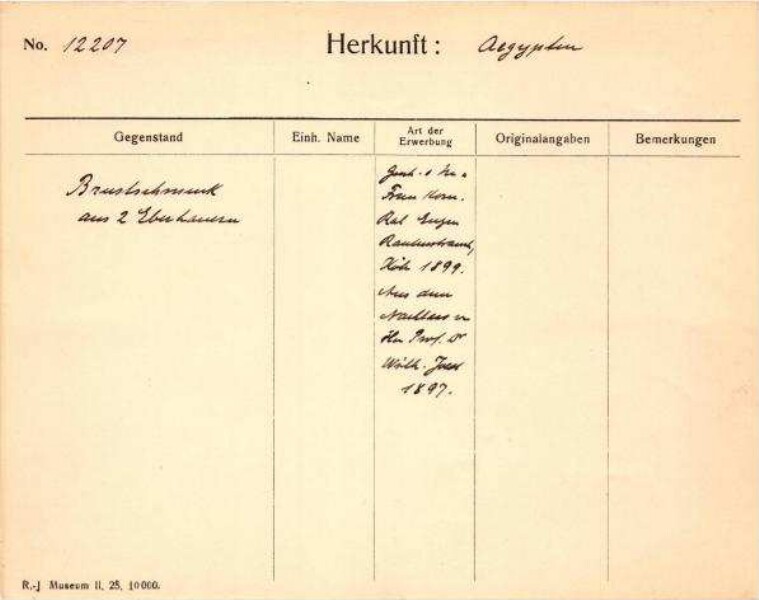 No. 12207 Herkunft: Aegypten
Gegenstand Einh. Name Art der Erwerbung Originalangaben Bemerkungen
Brustschmuck
aus 2 Eberhauern
Gesch. d.
Frau Kom.
Rat Eugen
Rautenstrauch,
Köln 1899.
Aus dem
Nachlass v.
Hn Prof. Dr
Wilh. Joest
1897.
R.-J Museum II, 25, 10000.